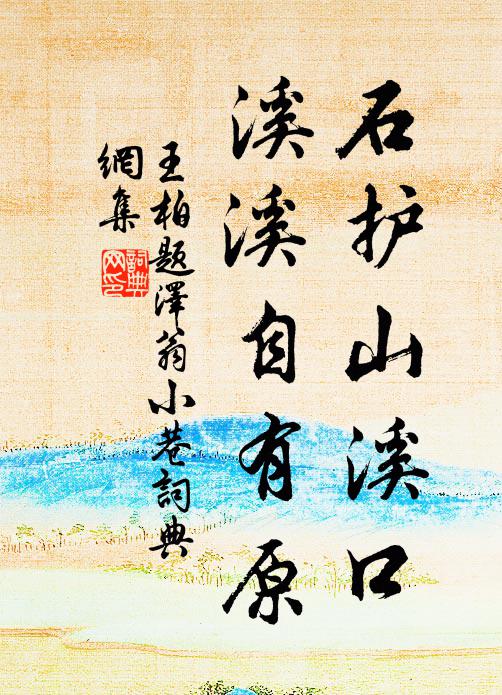 石护山溪口
溪溪自有原
王柏题澤翁小巷詞典
網集
詞典
网印